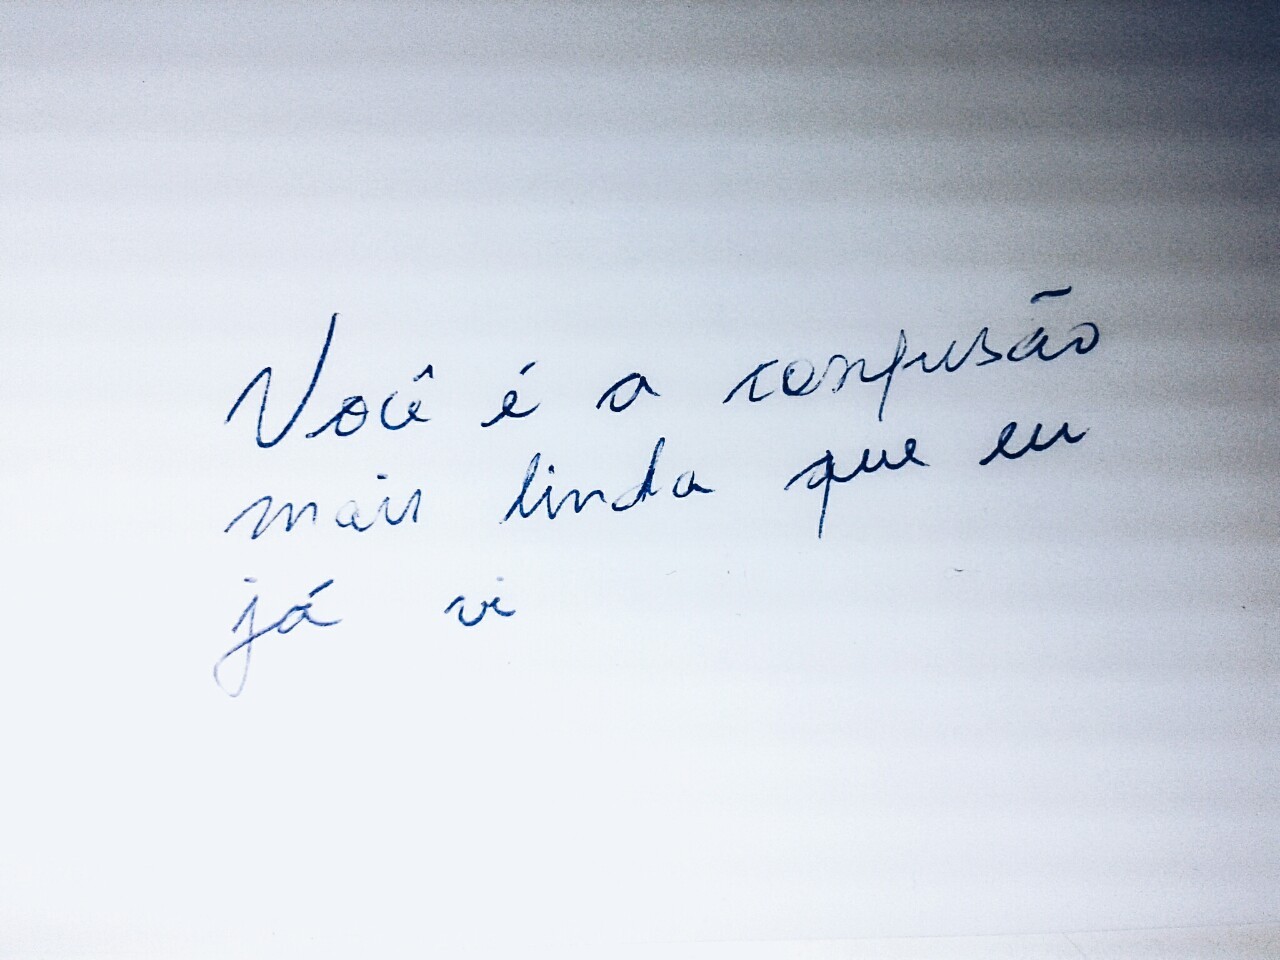 Você é a confusão
mais linda que eu
já vi